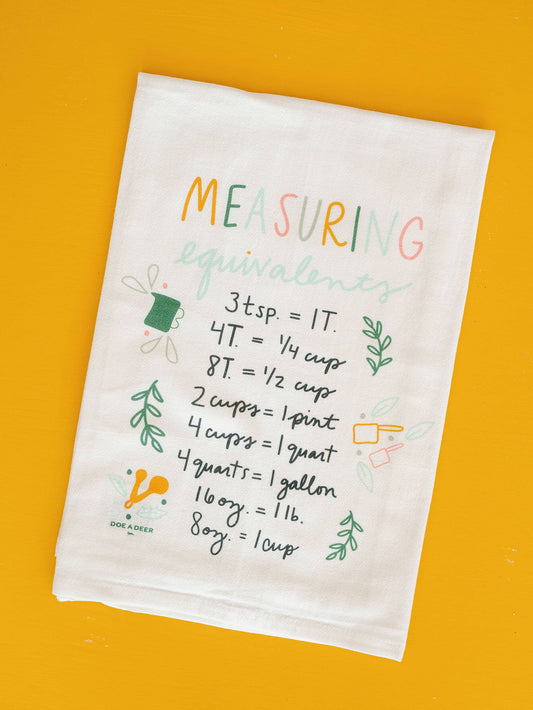 MEASURING
equivalents
3 tsp. = 1T.
4T. = 1/4 cup
8T. = 1/2 cup
2 cups = 1 pint
4 cups = 1 quart
4 quarts = 1 gallon
16 oz. = 1 lb.
8 oz. = 1 cup
DOE A DEER